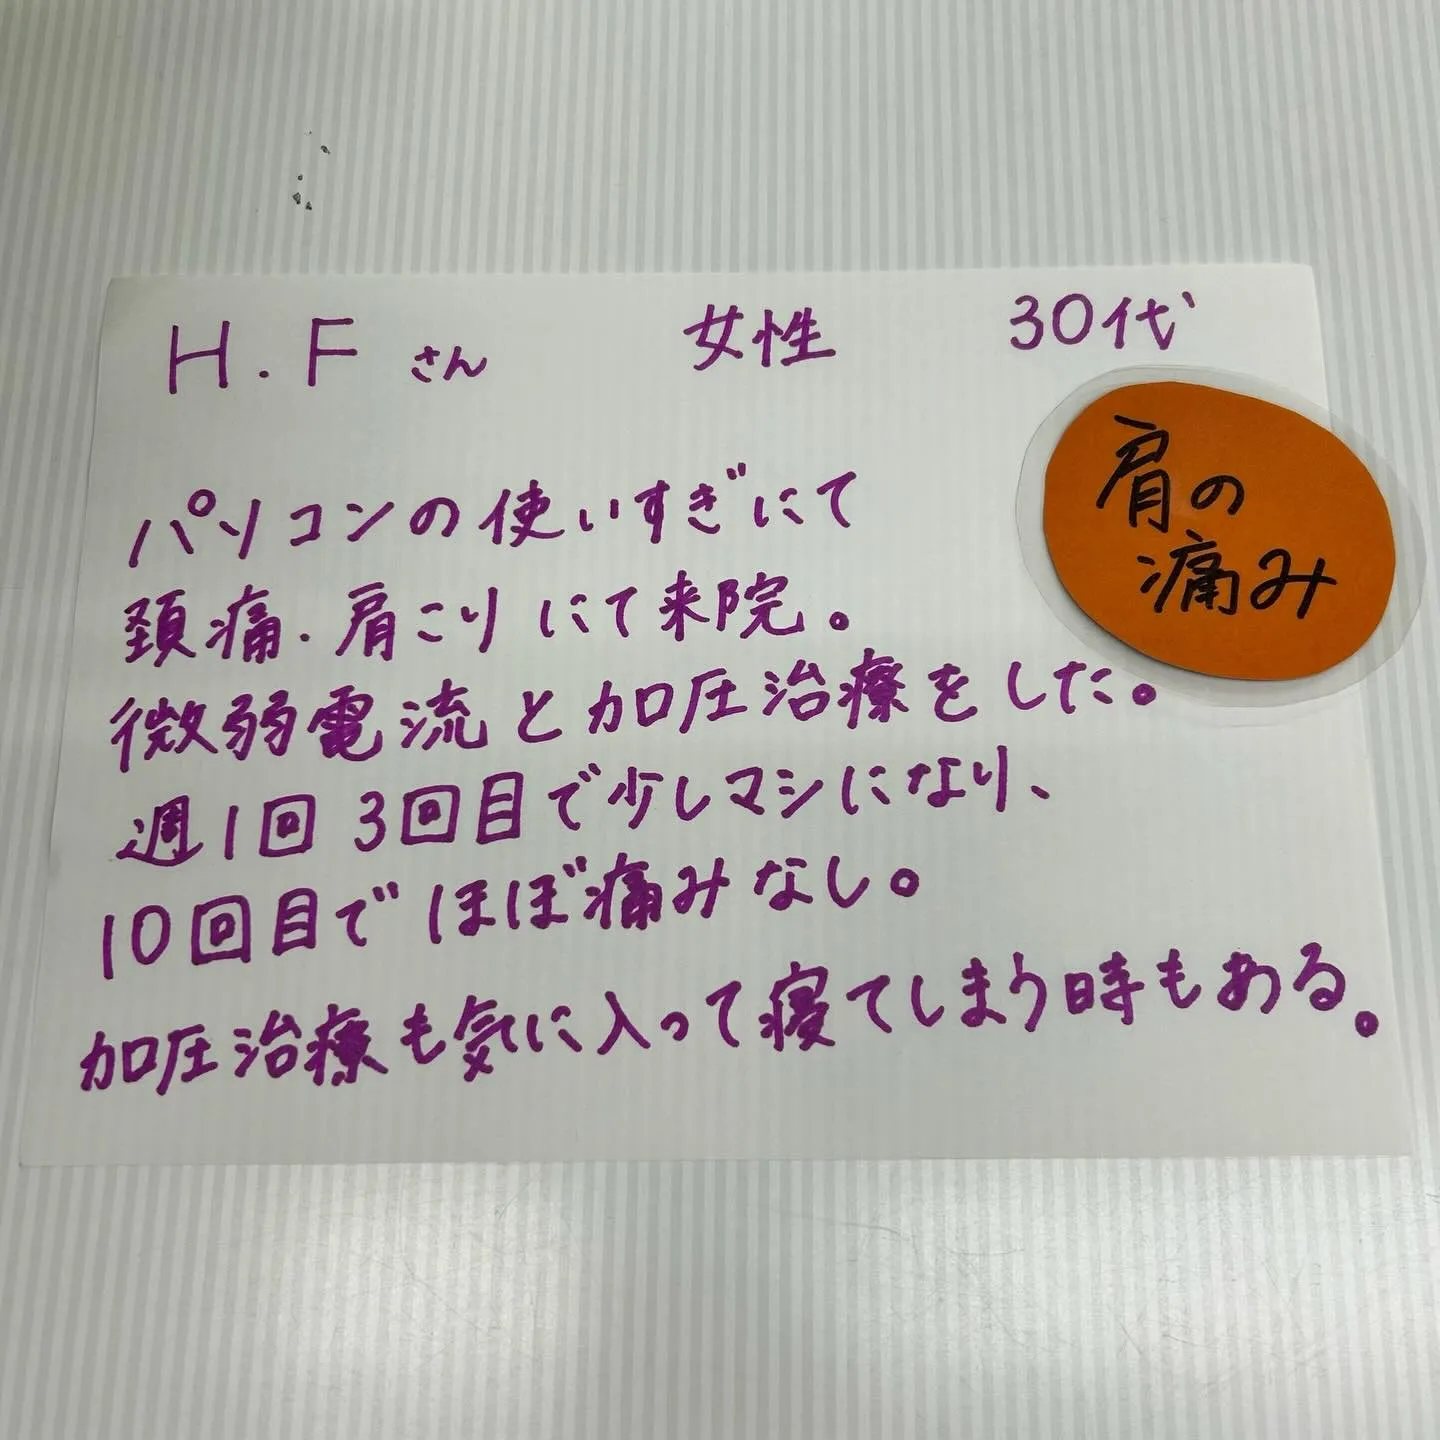 H.F さん 女性 30代
肩の
痛み
パソコンの使いすぎにて
頚痛・肩こりにて来院。
微弱電流と加圧治療をした。
週1回 3回目で少しマシになり、
10回目でほぼ痛みなし。
加圧治療も気に入って寝てしまう時もある。